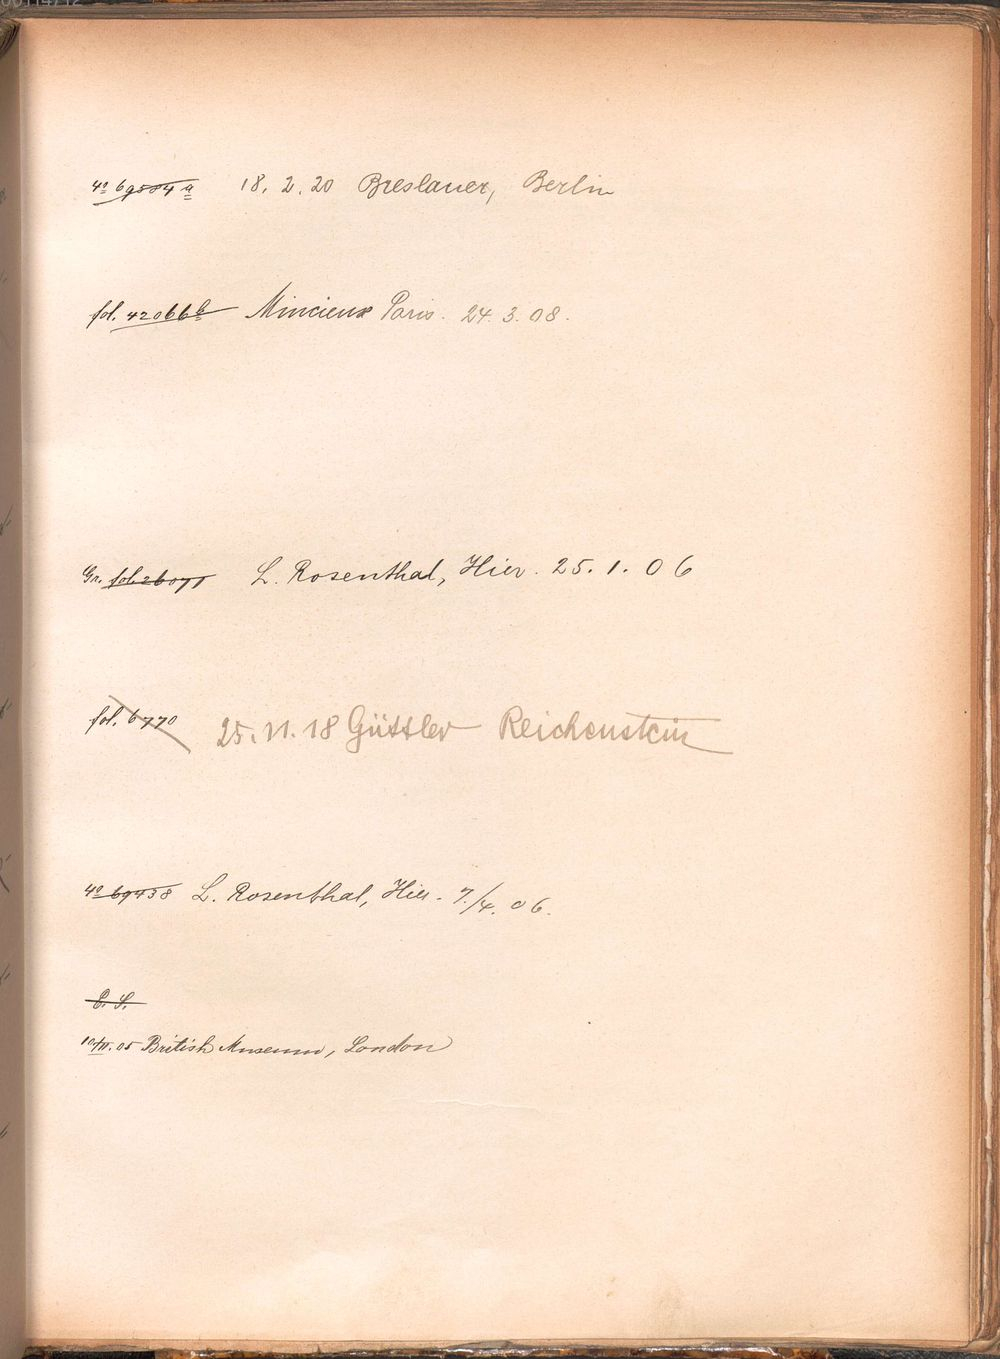 4° 69584 a 18. 2. 20 Breslauer, Berlin
fol. 42066 b Mincieux Paris. 24. 3. 08.
Gr. fol. 26071 L. Rosenthal, Hier. 25. 1. 06
fol. 6770 25. 11. 18 Güttler Reichenstein
4° 69438 L. Rosenthal, Hier. 7./4. 06.
E. S.
10/II. 05 British Museum, London